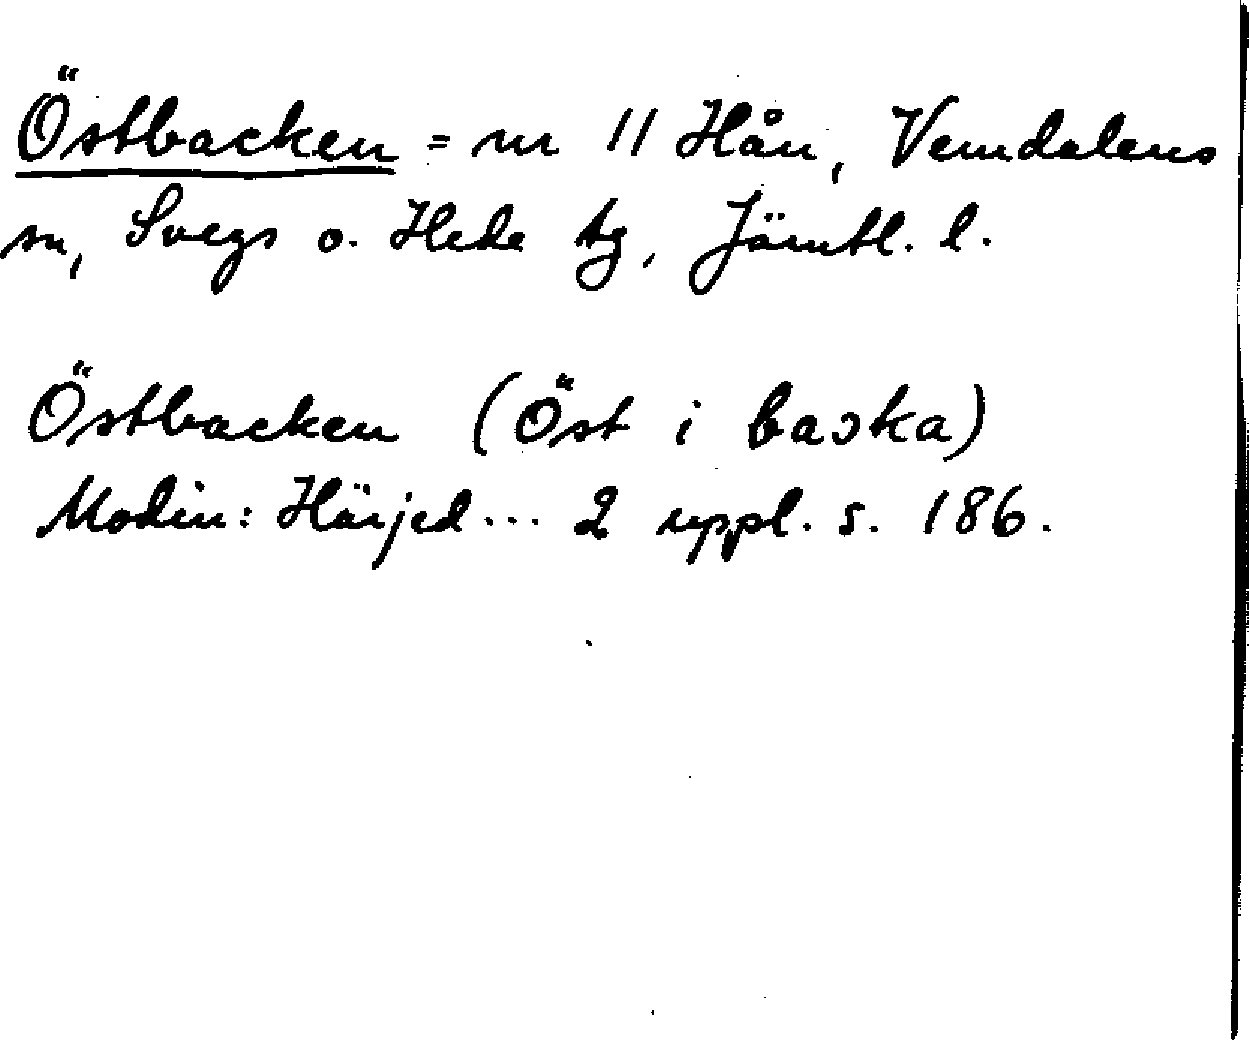 Östbacken = nr 11 Hån, Vemdalens
sn, Svegs o. Hede tg, Jämtl. l.
Östbacken (Öst i baɔka)
Modin: Härjed... 2 uppl. s. 186.